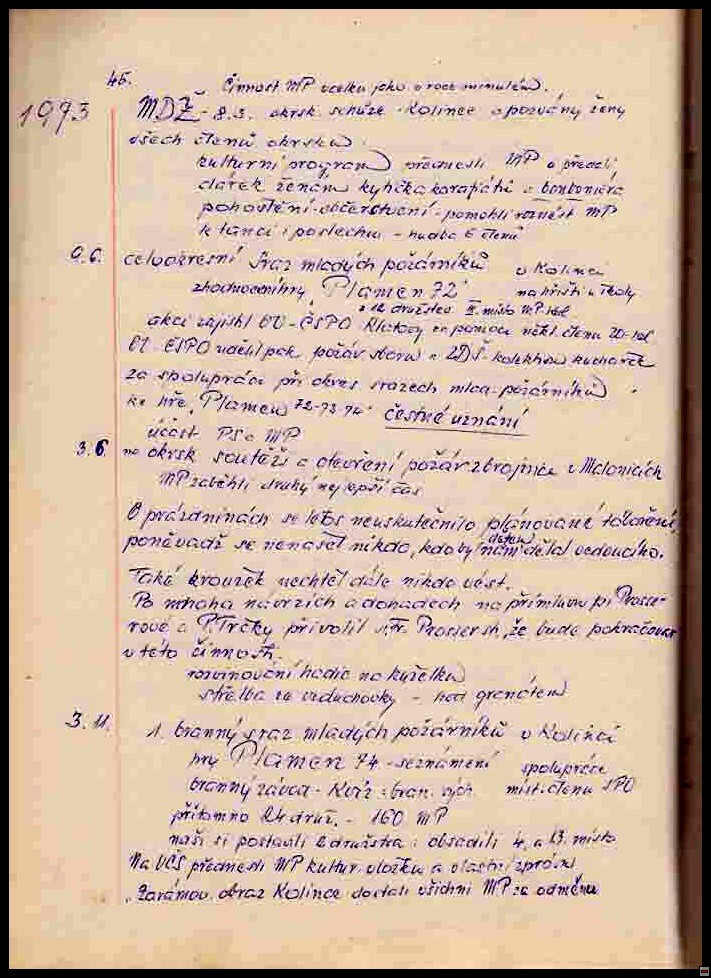 45. Činnost MP vcelku jako v roce minulém.
1973 MDŽ - 8.3. okrsk. schůze - Kolinec a pozvány ženy
všech členů okrsku.
kulturní program přednesli MP a předali
dárek ženám kytička karafiátů a bonboniéra
pohoštění - občerstvení - pomohli roznést MP
k tanci i poslechu - hudba 6 členů
9.6. celookresní sraz mladých požárníků v Kolinci
zhodnocení hry "Plamen 72" na hřišti u školy
12 družstev II. místo MP-Kol.
akci zajistil OV-ČSPO Klatovy za pomoci někt. členů ZO-Kol
OV. ČSPO udělil pak požár. sboru a ZDŠ. kolektivu kuchařek
za spolupráci při okres. srazech mlad. požárníků
ke hře "Plamen 72-73-74" čestné uznání
účast PS a MP
3.6. na okrsk soutěži a otevření požár. zbrojnice v Malonicích
MP zaběhli druhý nejlepší čas
O prázdninách se letos neuskutečnilo plánované táboření,
poněvadž se nenašel nikdo, kdo by dětem dělal vedoucího.
Také kroužek nechtěl dále nikdo vést.
Po mnoha návrzích a dohadech na přímluvu pí Prosse-
rové a P. Trčky přivolil s. Fr. Prosser st., že bude pokračovat
v této činnosti.
rozvinování hadic na kuželku
střelba ze vzduchovky - hod granátem
3.11. 1. branný sraz mladých požárníků v Kolinci
hry Plamen 74 - seznámení spolupráce
branný závod - Kvíz: bran. míst. členů SPO
přítomno 24 druž. - 160 MP
naši si postavili 2 družstva: obsadili 4. a 13. místo
Na VČS přednesli MP kultur. vložku a vlastní zprávu
Zarámov. obraz Kolince dostali všichni MP za odměnu